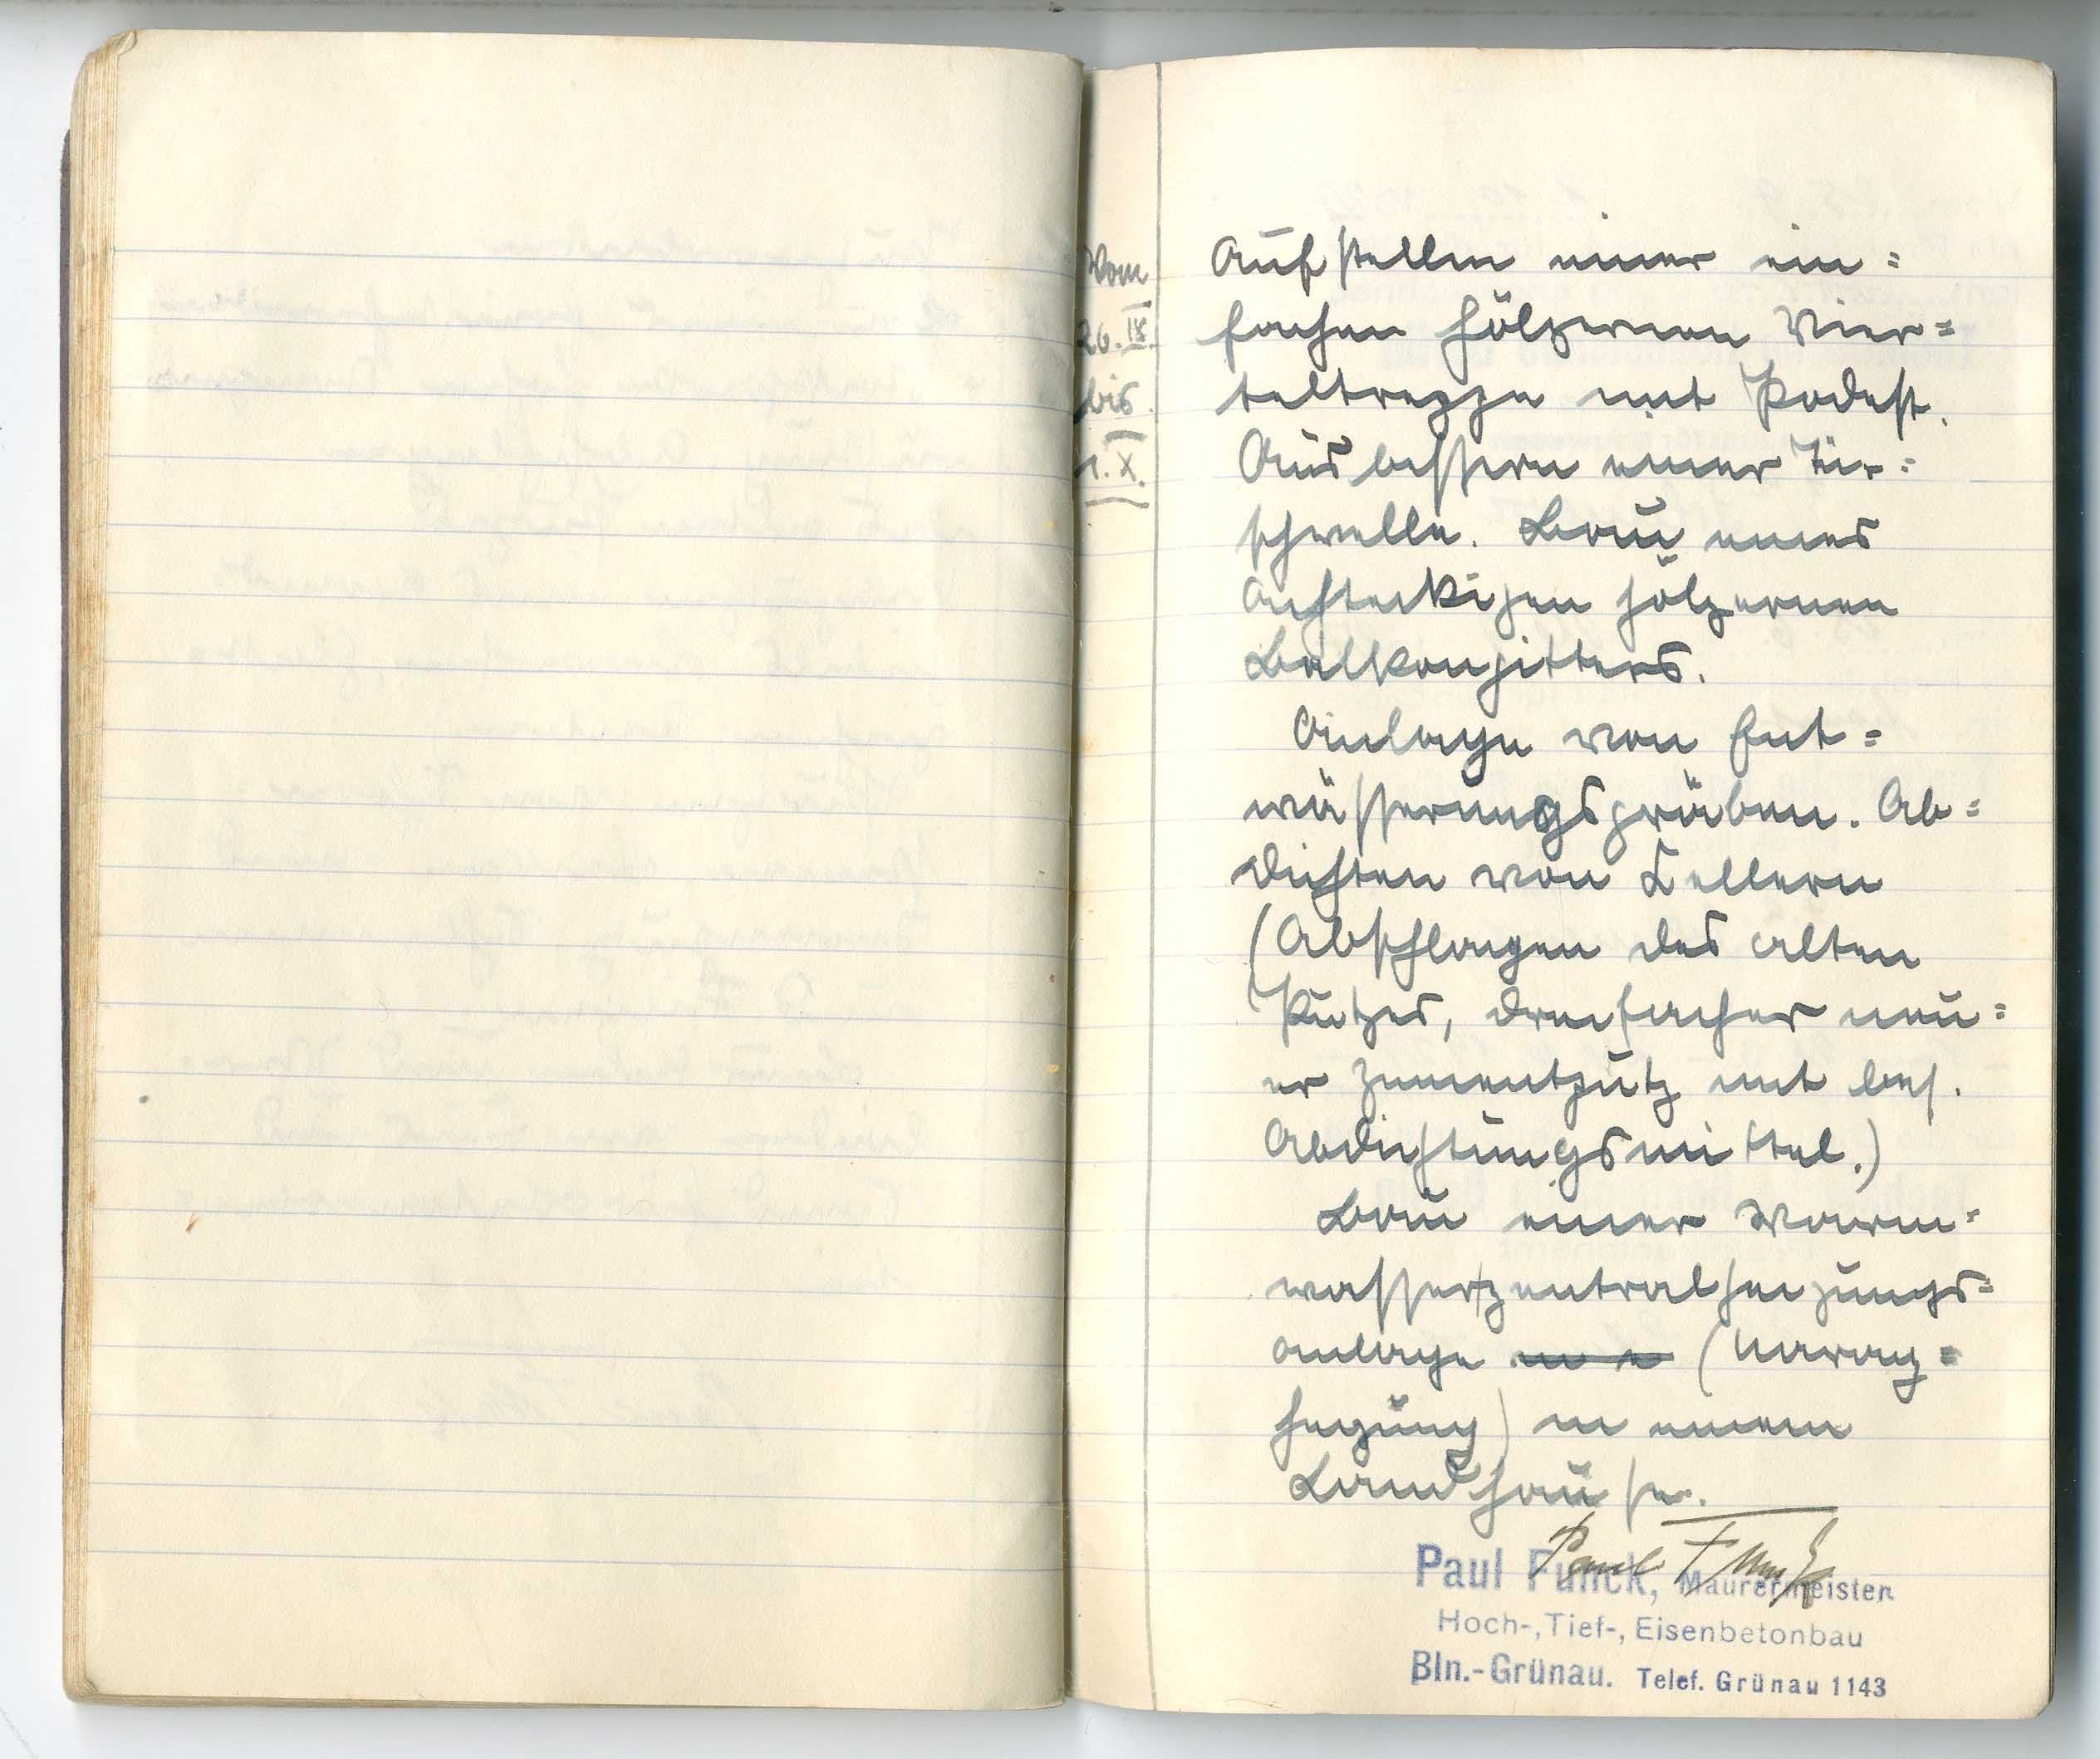 Vom
26. IX.
bis
1. X.
Aufstellen einer ein=
fachen hölzernen Vier=
teltreppe mit Podest.
Ausbessern einer Tür=
schwelle. Bau eines
achteckigen hölzernen
Balkongitters.
Anlage von Ent=
wässerungsgräben. Ab=
dichten von Kellern
(Abschlagen des alten
Putzes, dreifacher neu=
er Zementputz mit bes.
Abdichtungsmittel.)
Bau einer Warm=
wasserzentralheizungs=
anlage (Narag=
heizung) in einem
Landhause.
Paul Funck
Paul Funck, Maurermeister
Hoch-, Tief-, Eisenbetonbau
Bln.-Grünau. Telef. Grünau 1143